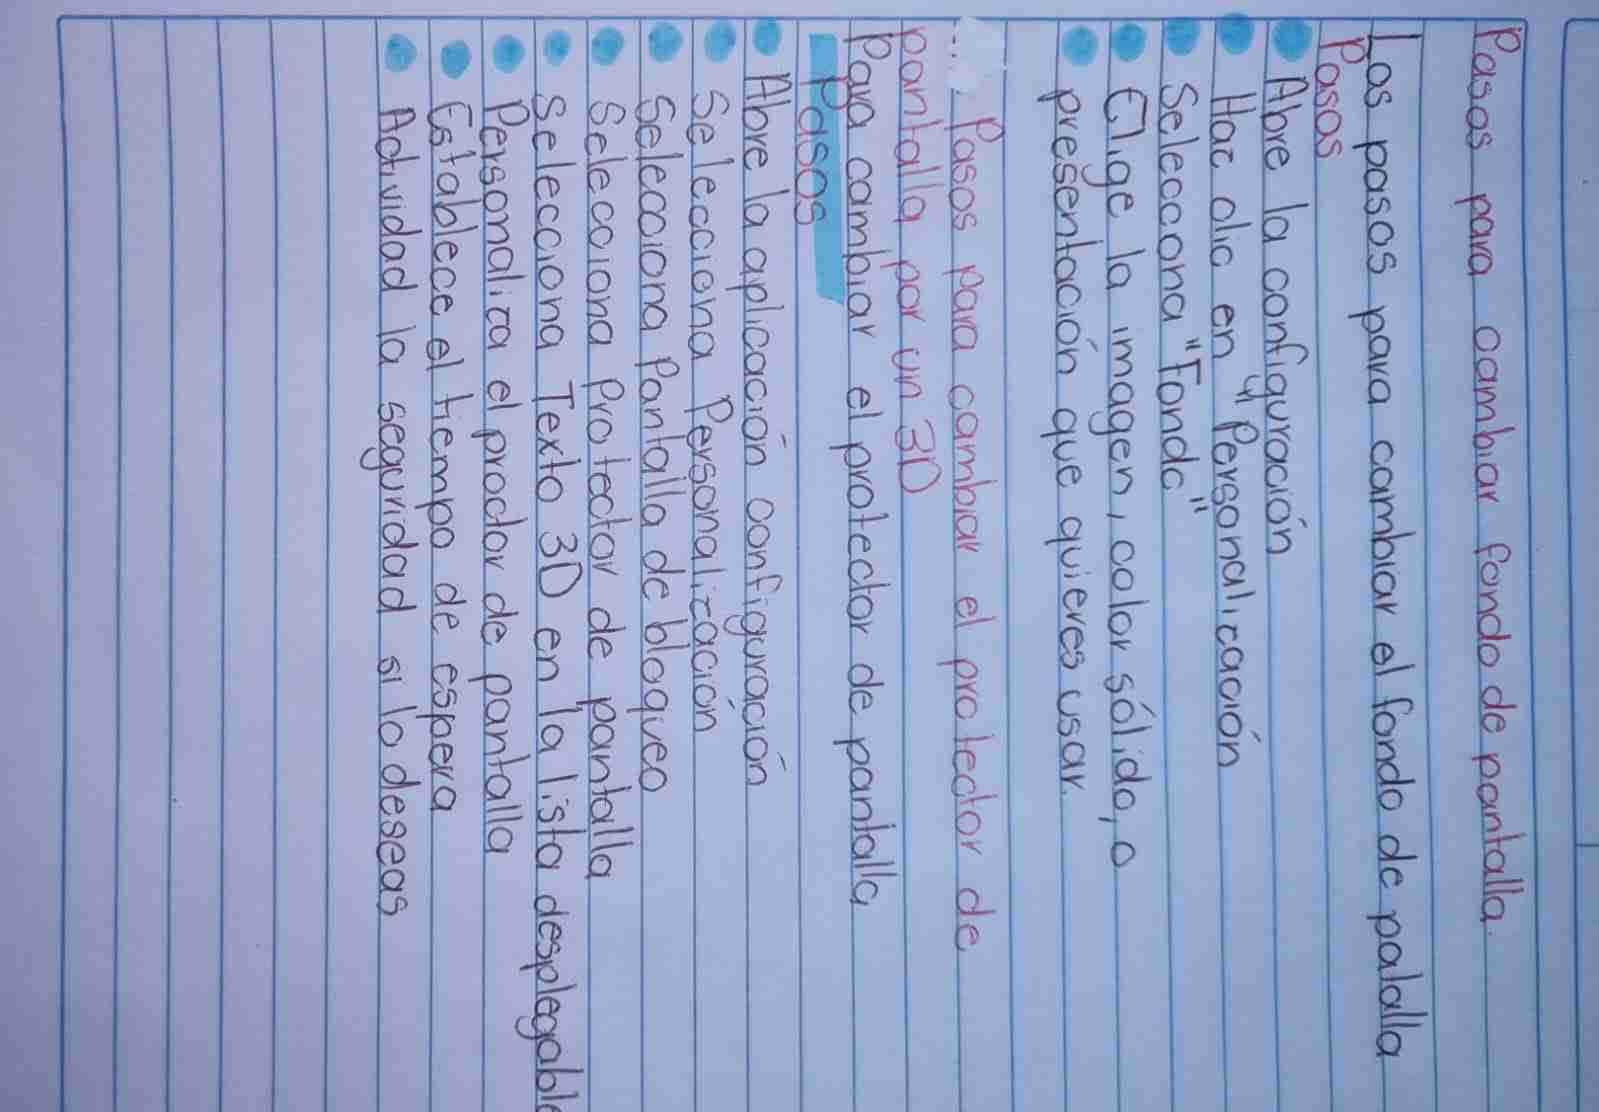 Pasos para cambiar fondo de pantalla.
Los pasos para cambiar el fondo de palalla
Pasos
Abre la configuración
Haz clic en "Personalización
Selecciona "Fondo"
Elige la imagen, color sólido, o
presentación que quieres usar.
... Pasos para cambiar el protector de
pantalla por un 3D
Para cambiar el protector de pantalla
Pasos
Abre la aplicación configuración
Selecciona Personalización
Selecciona Pantalla de bloqueo
Selecciona Protector de pantalla
Selecciona Texto 3D en la lista desplegable
Personaliza el prodor de pantalla
Establece el tiempo de espera
Actividad la seguridad si lo deseas